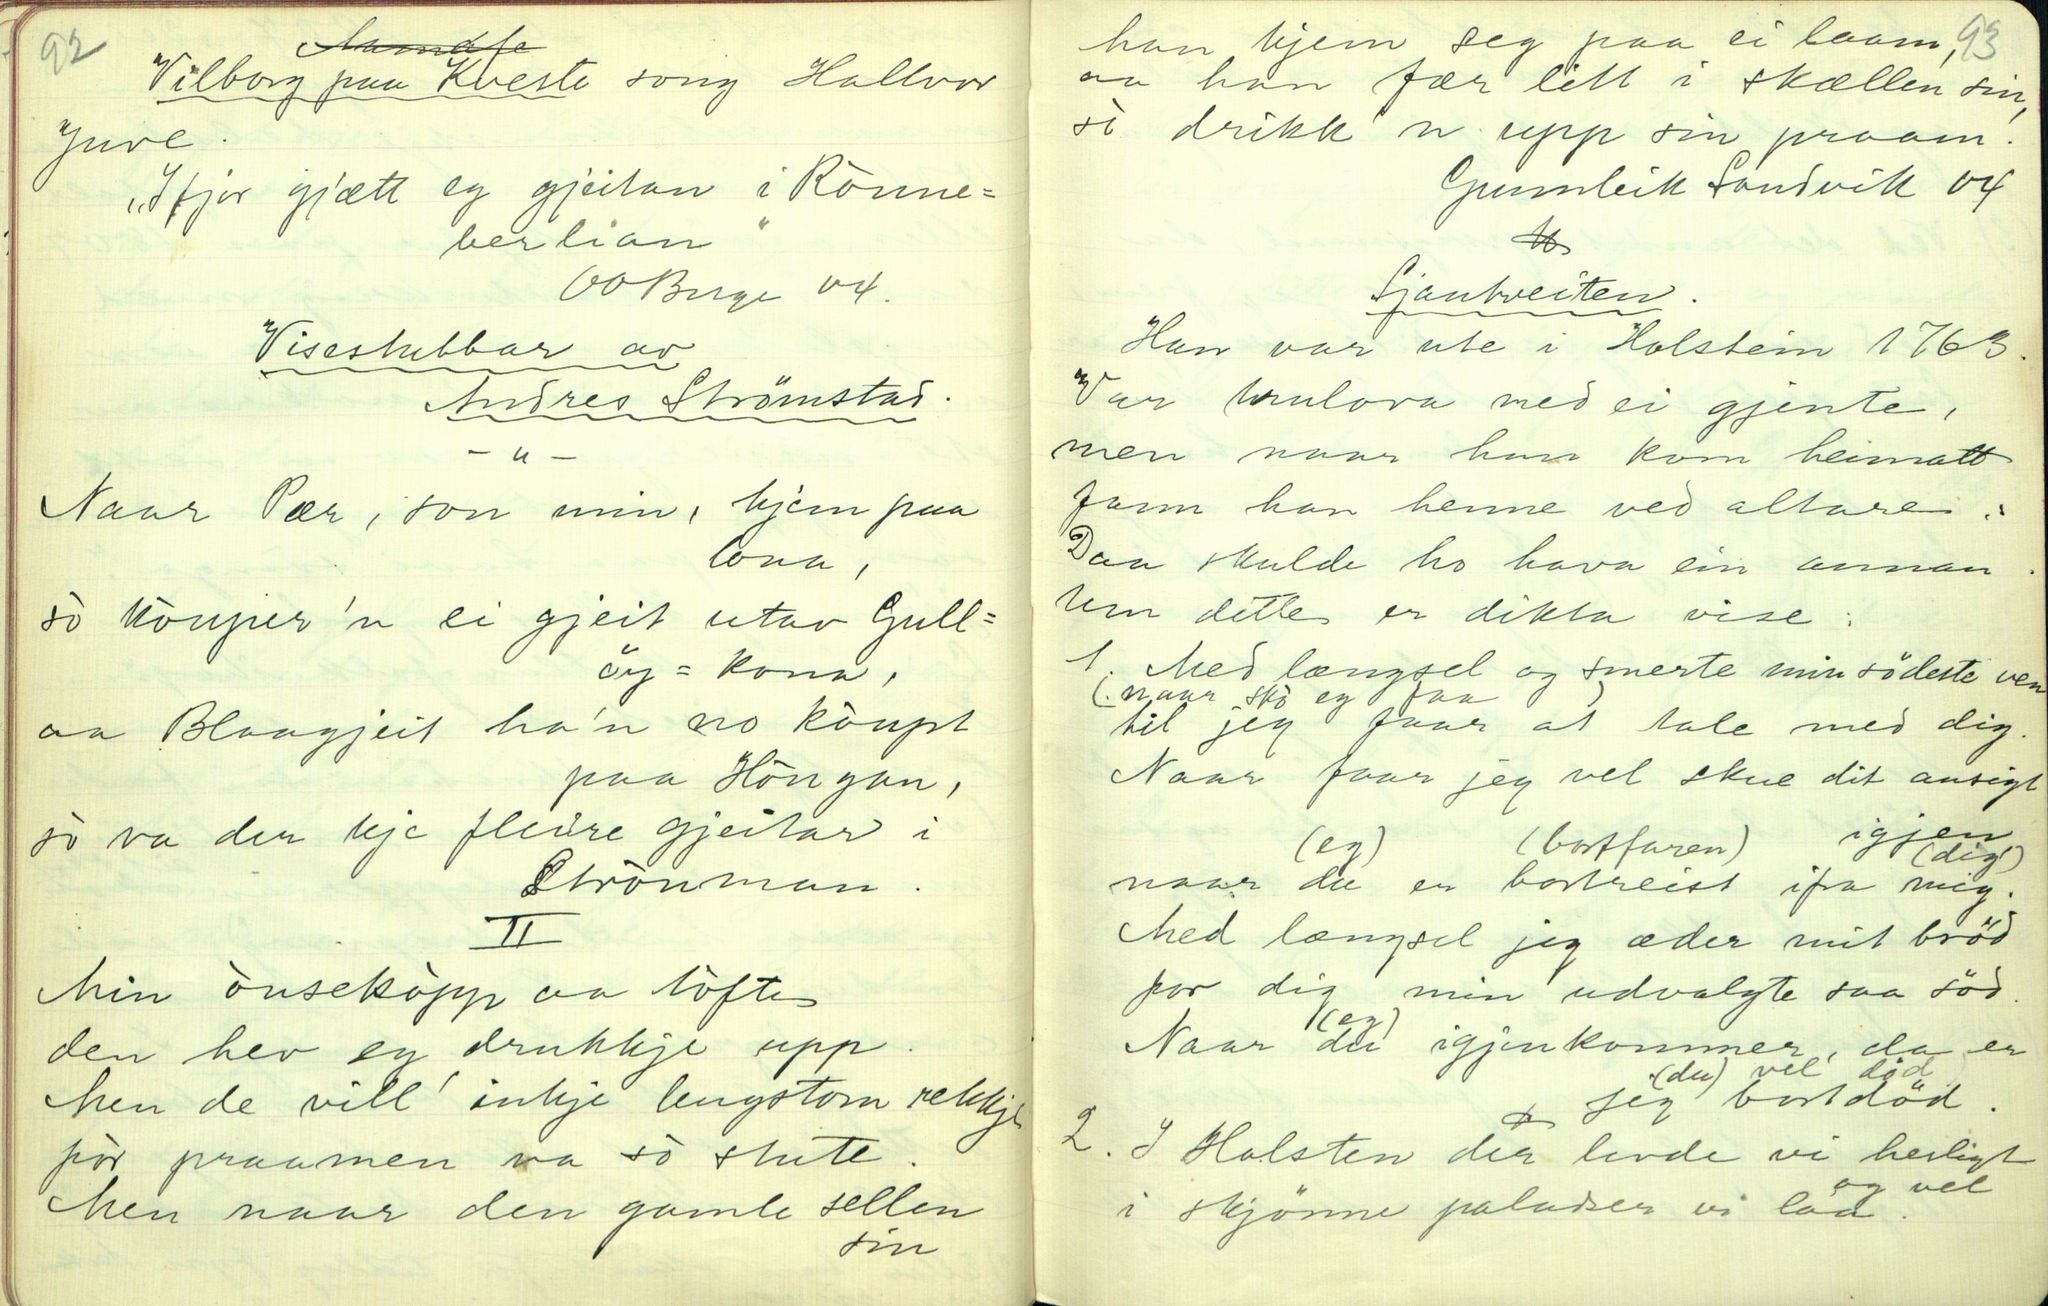 92
Vilborg paa Kveste song Hallvor
Juve.
"Ifjor gjætt eg gjeitan i Rònne=
berlian"
OOBerge 04.
Visestubbar av
Andres Strömstad.
- " -
Naar Pær, son min, kjem paa
lona,
sò kòuper'n ei gjeit utav Gull=
öy=kona,
aa Blaagjeit ha'n no kòupt
paa Höngan,
sò va der kje fleire gjeitar i
Strònman.
II
Min òusekòpp aa lòfte
den hev eg drukkje upp.
Men de vill' inkje lengstom rekkje
för praamen va sò stute.
Men naar den gamle sellen
sin
93
han kjem seg paa ei laam,
aa han fær litt i skællen sin,
sò drikk 'n upp sin praam.
Gunnleik Sondvik 04
Sjautveiten.
Han var ute i Holstein 1763.
Var trulova med ei gjente,
men naar han kom heimatt
fann han henne ved altare:
Daa skulde ho hava ein annan.
Um dette er dikta vise:
1. Med længsel og smerte min södeste ven
(naar skò eg faa)
til jeg faar at tale med dig.
Naar faar jeg vel skue dit ansigt
igjen
(eg) (bortfaren) (dig)
naar du er bortreist ifra mig.
Med længsel jeg æder mit bröd
for dig min udvalgte saa söd.
(eg)
Naar du igjenkommer, da er
(du) vel död
jeg bortdöd.
2. I Holsten der levde vi herligt
og vel
i skjönne paladser vi laa.